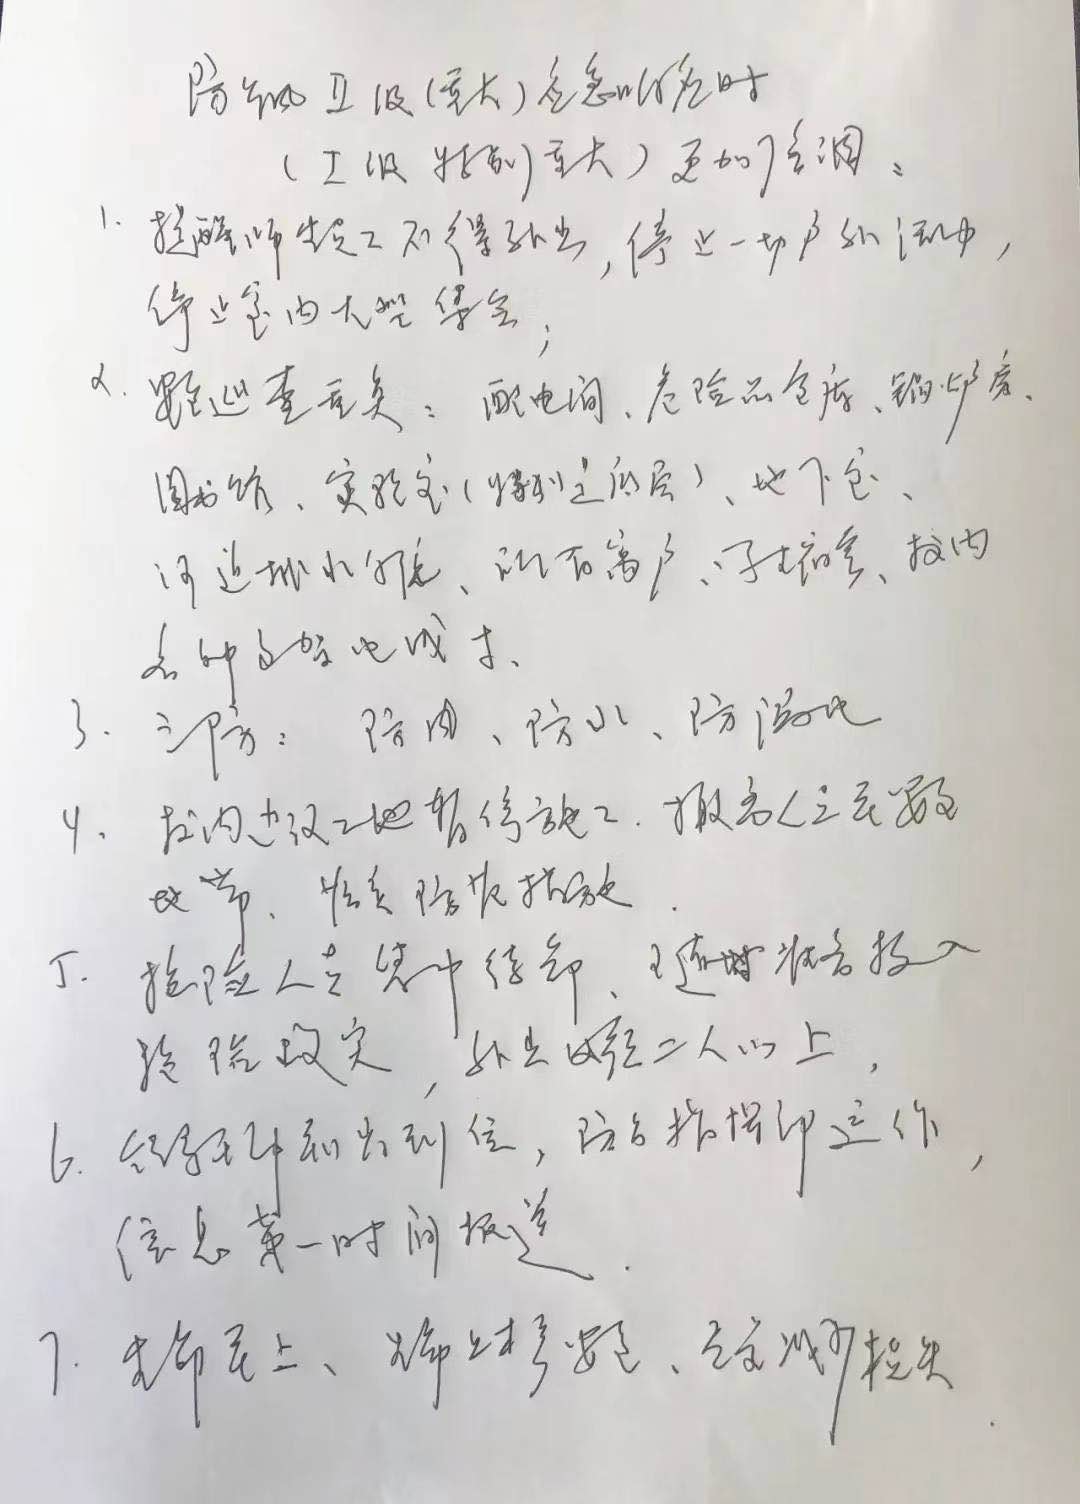 防台风Ⅱ级(重大)应急响应时
(Ⅰ级 特别重大)更加强调:
1. 提醒师生员工不得外出,停止一切户外活动,
停止室内大型集会;
2. 巡查重点:配电间、危险品仓库、锅炉房、
图书馆、实验室(特别是底层)、地下室、
河边排水、所有窗户、学生宿舍、校内
各种
3. 三防:防雨、防水、防漏电
4. 校内建设工地暂停施工.撤离人员至安全
地带、落实防范措施.
5. 抢险人员集中待命、随时准备投入
抢险救灾,外出必须二人以上,
6. 领导干部到岗到位,防台指挥部运作,
信息第一时间报送.
7. 生命至上、生命安全、减少损失.